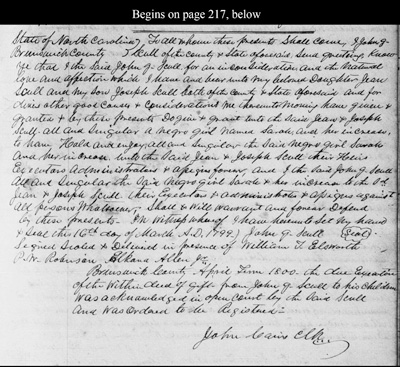 Begins on page 217, below
State of North Carolina, To all whome these presents Shall Come, I John G
Brunswick County I Scull of sd county & State aforesaid Send greeting Know
ye that I the Said John G. Scull for an in consideration and the Natural
love and affection which I have and bear unto my beloved Daughter Jean
Scull and my son Joseph Scull both of sd County & State aforesaid and for
divers other good Cause & Considerations me thereunto Moving have given &
granted & by these presents Do give & grant unto the Said Jean & Joseph
Scull all and Singular a negro girl Named Sarah and her increase,
to have Hold and enjoy all and Singular the Said Negro girl Sarah
and her increase unto the Said Jean & Joseph Scull their Heirs
Executors Administrators & Assigns forever, and I the Said John G. Scull
All and Singular the Said Negro girl Sarah & her increase to the Sd
Jean & Joseph Scull their Executors & Administrators & Assigns against
all persons Whatsoever, Shall & Will Warrant and forever Defend
by these presents. In Witness whereof I have hereunto Set my hand
& Seal this 16th day of March A.D. 1799. John G. Scull (Seal)
Signed Sealed & Delivered in presence of William T. Elsworth
P.W. Robinson. Elkana Allen
Brunswick County April Term 1800. the due Execution
of the Within deed of Gift from John G Scull to his Children
Was acknowledged in open court by the Said Scull
And Was Ordered to be Registered
John Cains Clk.